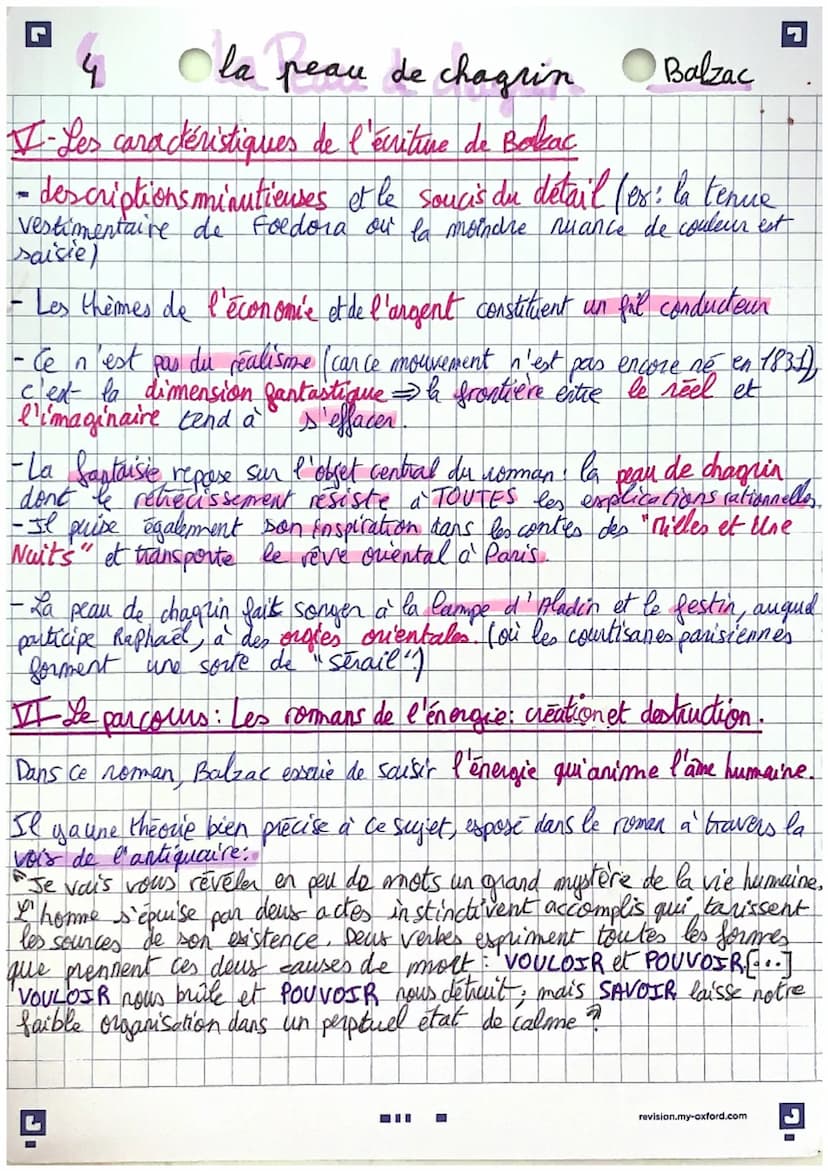 4 la peau de chagrin Balzac
V-Les caractéristiques de l'écriture de Balzac
- descriptions minutieuses et le soucis du détail (ex: la tenue
vestimentaire de Foedora où la moindre nuance de couleur est
saisie)
- Les thèmes de l'économie et de l'argent constituent un fil conducteur
- Ce n'est pas du réalisme (car ce mouvement n'est pas encore né en 1831),
c'est la dimension fantastique ⇒ la frontière entre le réel et
l'imaginaire tend à s'effacer.
- La fantaisie repose sur l'objet central du roman: la peau de chagrin
dont le rétrécissement résiste à TOUTES les explications rationnelles.
- Il puise également son inspiration dans les contes des "Milles et Une
Nuits" et transporte le rêve oriental à Paris.
- La peau de chagrin fait songer à la lampe d'Aladin et le festin, auquel
participe Raphaël, à des orgies orientales. (où les courtisanes parisiennes
forment une sorte de "sérail".)
VI-Le parcours: Les romans de l'énergie: création et destruction.
Dans ce roman, Balzac essaie de saisir l'énergie qui anime l'âme humaine.
Il y a une théorie bien précise à ce sujet, exposé dans le roman à travers la
voix de l'antiquaire:
"Je vais vous révéler en peu de mots un grand mystère de la vie humaine.
L'homme s'épuise par deux actes instinctivent accomplis qui tarissent
les sources de son existence. Deux verbes expriment toutes les formes
que prennent ces deux causes de mort: VOULOIR et POUVOIR. [...]
VOULOIR nous brûle et POUVOIR nous détruit; mais SAVOIR laisse notre
faible organisation dans un perptuel état de calme"
revision.my-oxford.com